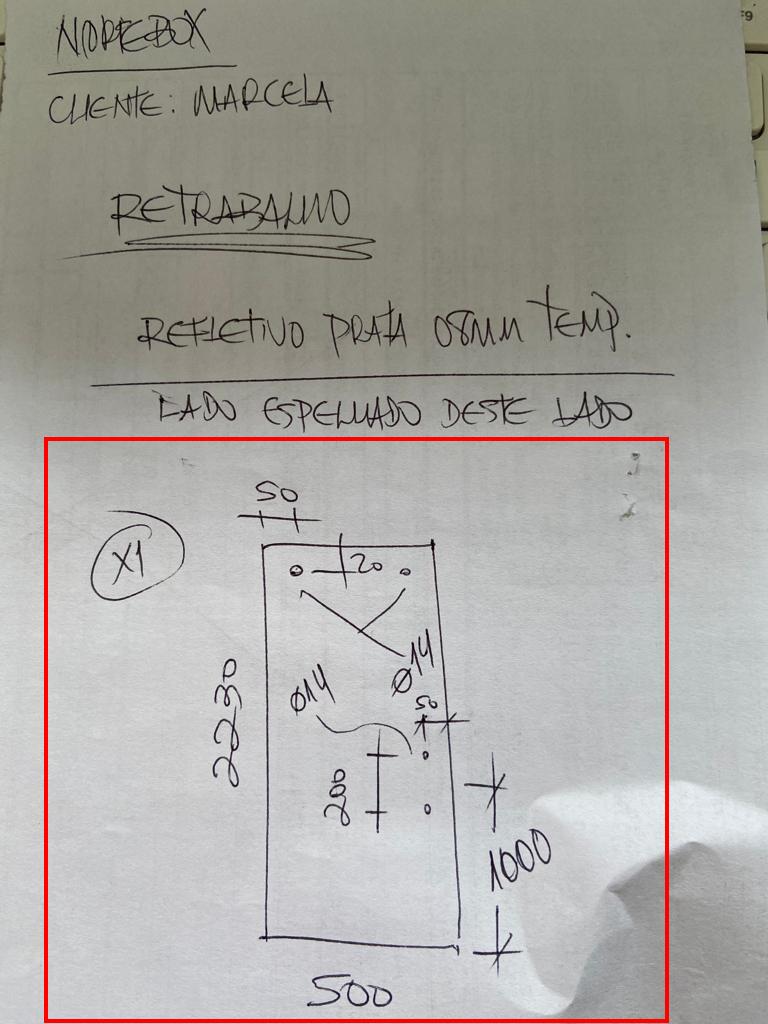 NOREBOX
CLIENTE: MARCELA
RETRABALHO
REFLETIVO PRATA 08MM TEMP.
LADO ESPELHADO DESTE LADO
50
X1
20
Ø14
Ø14
50
2230
200
1000
500
F9